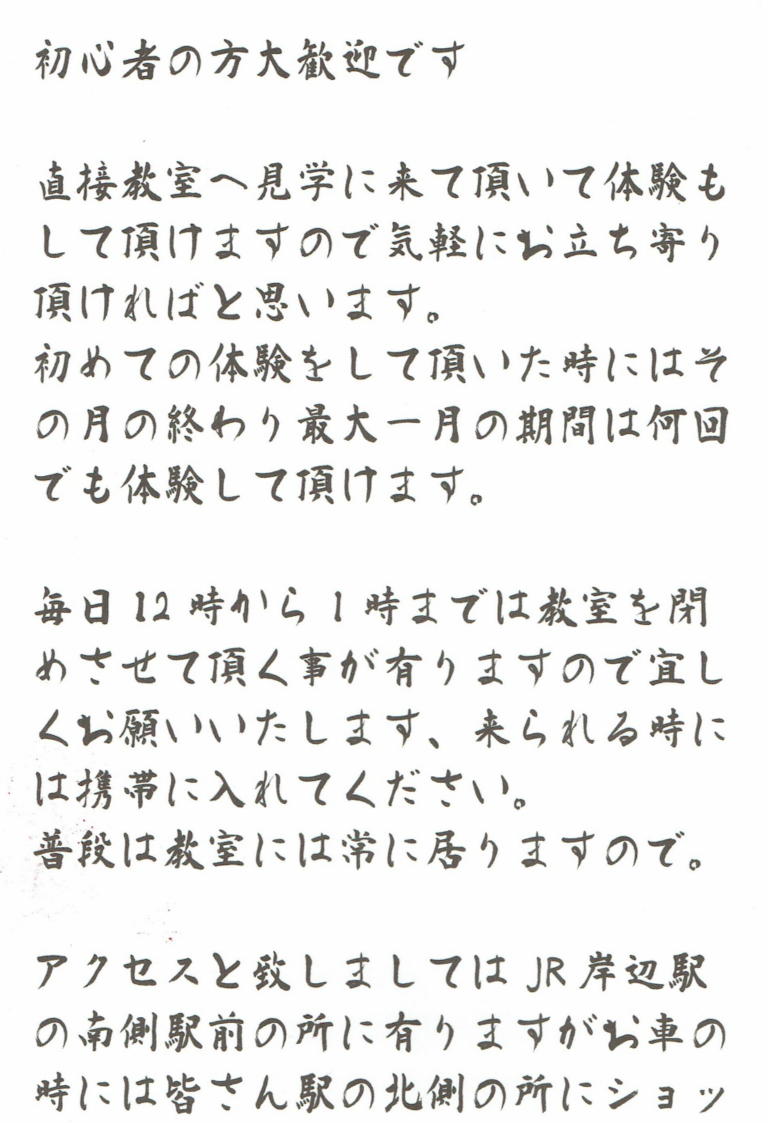 初心者の方大歓迎です
直接教室へ見学に来て頂いて体験も
して頂けますので気軽にお立ち寄り
頂ければと思います。
初めての体験をして頂いた時にはそ
の月の終わり最大一月の期間は何回
でも体験して頂けます。
毎日12時から1時までは教室を閉
めさせて頂く事が有りますので宜し
くお願いいたします、来られる時に
は携帯に入れてください。
普段は教室には常に居りますので。
アクセスと致しましてはJR岸辺駅
の南側駅前の所に有りますがお車の
時には皆さん駅の北側の所にショッ